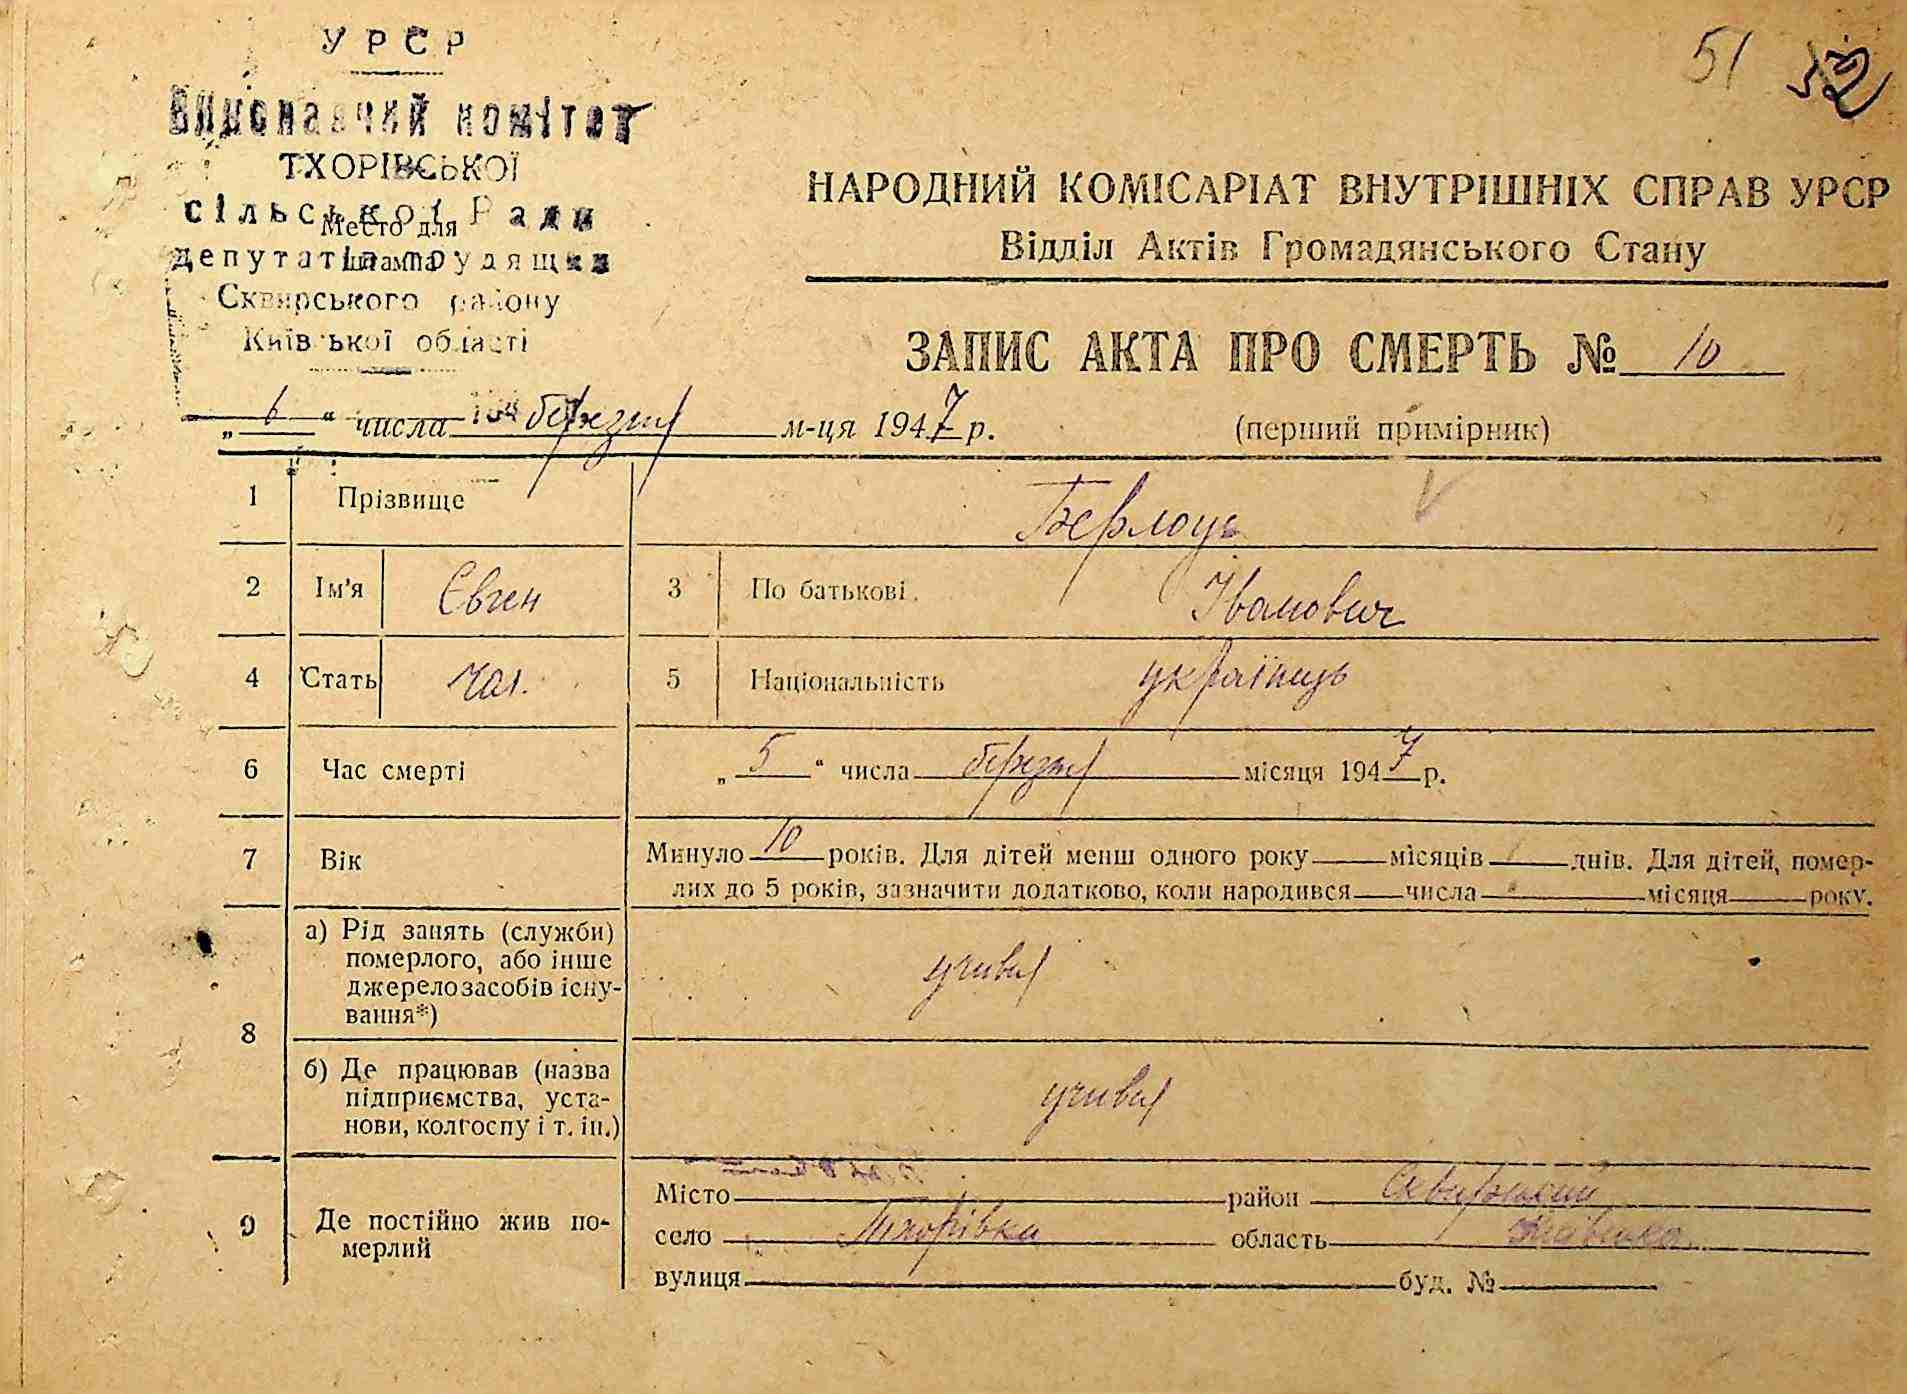 51 52
УРСР
Виконавчий комітет
ТХОРІВСЬКОЇ
сільської Ради
Место для
депутатів трудящих
штампа
Сквирського району
Київської області
НАРОДНИЙ КОМІСАРІАТ ВНУТРІШНІХ СПРАВ УРСР
Відділ Актів Громадянського Стану
ЗАПИС АКТА ПРО СМЕРТЬ № 10
„ 6 “ числа березня м-ця 1947 р.
(перший примірник)
1 Прізвище Берлоць
2 Ім'я Євген 3 По батькові Іванович
4 Стать чол. 5 Національність українець
6 Час смерті „ 5 “ числа березня місяця 1947 р.
7 Вік Минуло 10 років. Для дітей менш одного року місяців днів. Для дітей, помер-
лих до 5 років, зазначити додатково, коли народився числа місяця року.
8 а) Рід занять (служби)
померлого, або інше
джерело засобів існу-
вання*)
учивсь
б) Де працював (назва
підприємства, уста-
нови, колгоспу і т. ін.)
9 Де постійно жив по-
мерлий
Місто район Сквирський
село Тхорівка область Київська
вулиця буд. №